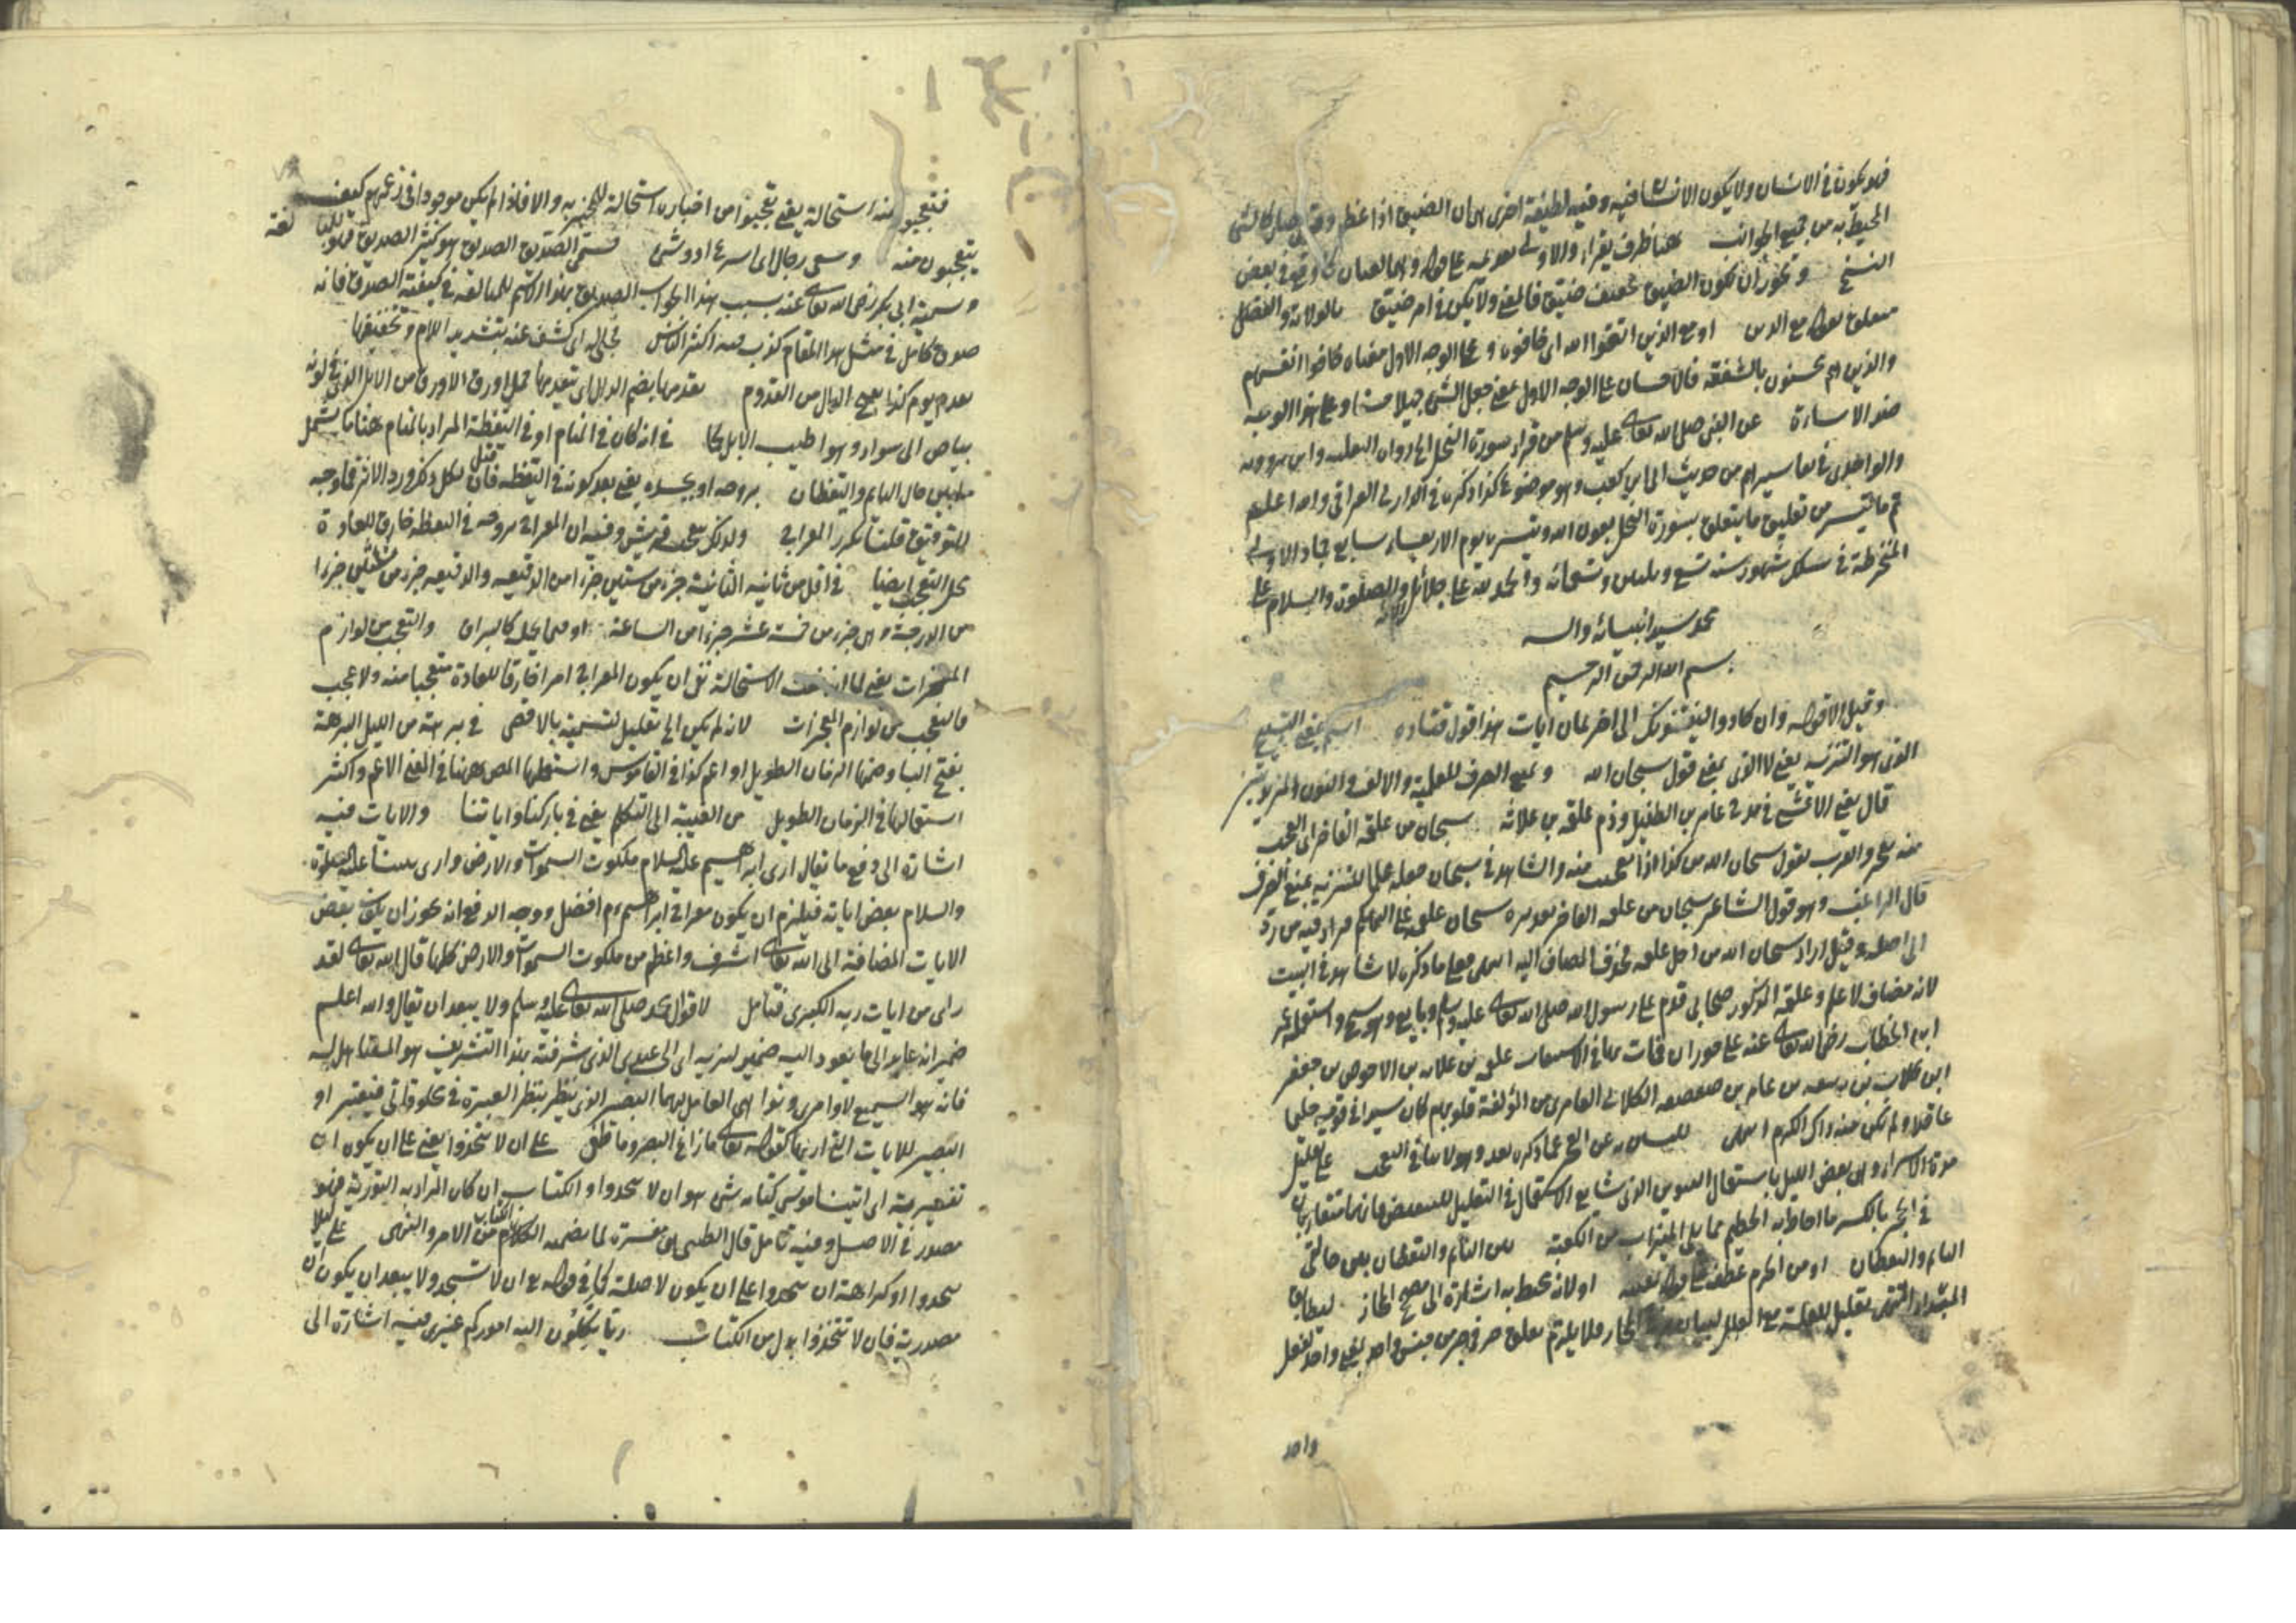 فهو يكون في الانسان ولا يكون الانسان فيه وفيه لطيفة اخرى هى ان الضيق اذا عظم وقوى صار كالشى
المحيط به من جميع الجوانب هنا ظرف يقرا والاولى
النسخ وتجوز ان يكون الضيق تخفيف ضيق فالمعنى ولا يكن في امر ضيق بالولاية والفضل
متعلق بقوله مع الذين او مع الذين اتقوا الله اى خافوه وعلى الوجه الاول معناه خافوا انفسهم
والذين هم محسنون بالشفقة فالاحسان على الوجه الاول بمعنى جعل الشى جميلا حسنا وعلى هذا الوجه
ضد الاساءة عن النبى صلى الله تعالى عليه وسلم من قراء سورة النحل الى رواه الثعلبى وابن مردويه
والواحدى في تفاسيرهم من حديث ابى ابن كعب وهو موضوع كذا ذكره العراقى والله اعلم
تم ما تيسر من تعليق ما يتعلق بسورة النحل بعون الله وتيسيره يوم الاربعاء سابع جماد الاولى
المنخرطة في سلك شهور سنة تسع وثلثين وتسعمائه والحمد لله على جلائل الائه والصلوة والسلام على
محمد سيد انبيائه واله
بسم الله الرحمن الرحيم
وقيل الا قوله وان كادوا ليفتنونك الى اخر ثمان ايات هذا قول قتاده اسم بمعنى التسبيح
الذى هو التنزيه يعنى لا الذى بمعنى قول سبحان الله ومنع الصرف للعلمية والالف والنون المزيدتين
قال يعنى الاعشى في مدح عامر بن الطفيل وذم علقه بن علاثه سبحان من علقه الفاخر اى العجب
منه والعرب تقول سبحان الله من كذا اذا تعجبت منه والشاهد في سبحان جعله علما للتنزيه بمنع الصرف
قال الراغب وهو قول الشاعر سبحان من علقه الفاخر تقديره سبحان علقمه على التهكم فزاد فيه من ردا
الى اصله وقيل اراد سبحان الله من اجل علقمه فحذف المضاف اليه انتهى فعلى ما ذكره لا شاهد في البيت
لانه مضاف لا علم وعلقه المذكور صحابى قدم على رسول الله صلى الله تعالى عليه وسلم وبايع وهو شيخ واستعمله عمر
ابن الخطاب رضى الله تعالى عنه على حوران فمات بها في الاستيعاب علقمه بن علاثه بن الاحوص بن جعفر
ابن كلاب بن ربيعه بن عامر بن صعصعه الكلابى العامرى من المؤلفة قلوبهم كان سيدا في قومه حليما
عاقلا ولم يكن فيه ذاك الكرم انتهى عن العجز عما ذكره بعد وهو لا ينافى التعجب على تقليل
مدة الاسراء وهى بعض الليل باستعمال التنوين الذى شايع الاستعمال في التقليل للتبعيض فانهما متقاربان
في الحجر بالكسر ما احاط به الحطيم مما يلى الميزاب من الكعبة بين النائم واليقظان بين حالتى
النائم واليقظان او من الحرم عطف على قوله بعينه او لانه محيط به اشارة الى مصحح المجاز ليطابق
المبتداء المنتهى تعليل للعلة مع المعلل فلا يلزم تعلق حرفى جر من جنس واحد بمعنى واحد بفعل
واحد
فتعجبوا منه استحالة يعنى تعجبوا من اخباره استحالة للمخبر به والا فاذا لم يكن موجودا في زعمهم كيف
يتعجبون منه وسعى رجال اى اسرعوا ومشى فسمى الصديق الصديق هو كثير الصديق مبالغة
وسمى ابى بكر رضى الله تعالى عنه بسبب هذا الجواب الصديق بهذا الاسم للمبالغه في كيفية الصدق فانه
صدق كامل في مثل هذا المقام كذب فيه اكثر الناس فجلى له اى كشف عنه بتشديد اللام وتخفيفها
بقدم يوم كذا بفتح الدال من القدوم يقدمها بضم الدال اى يتقدمها جمل اورق الاورق من الابل الذى في لونه
بياض الى سواد وهو اطيب الابل لحما في انه كان في المنام او في اليقظة المراد بالمنام ههنا ما يشتمل
ما بين حال النائم واليقظان بروحه او بجسده يعنى بعد كونه في اليقظه فان قيل كل ذكر ورد الاثر فما وجه
التوفيق قلنا تكرر المعراج ولذلك تعجب قريش وفيه ان المعراج بروحه في اليقظه خارق للعادة
محل التعجب ايضا في اقل من ثانيه الثانية جزء من ستين جزءا من الدقيقه والدقيقه جزء من ستين جزءا
من الدرجة وهى جزء من خمسة عشر جزءا من الساعة او فيما يحمله كالبراق والتعجب من لوازم
المعجزات يعنى لما الاستحالة بقى ان يكون المعراج امرا خارقا للعادة متعجبا منه ولا عجب
فالتعجب من لوازم المعجزات لانه لم يكن الى تعليل لتسمية بالاقصى في برهة من الليل البرهة
بفتح الباء وضمها الزمان الطويل او اعم كذا في القاموس واستعملها المص ههنا في المعنى الاعم واكثر
استعمالها في الزمان الطويل من الغيبة الى التكلم يعنى في باركنا واياتنا والايات فيه
اشارة الى دفع ما يقال ارى ابرهيم عليه السلام ملكوت السموات والارض وارى نبينا عليه الصلوة
والسلام بعض اياته فيلزم ان يكون معراج ابراهيم افضل ووجه الدفع انه يجوز ان يكون بعض
الايات المضافة الى الله تعالى اشرف واعظم من ملكوت السموات والارض كلها قال الله تعالى لقد
راى من ايات ربه الكبرى فتامل لاقوال محمد صلى الله تعالى عليه وسلم ولا يبعد ان يقال والله اعلم
ضمير انه عايد الى ما يعود اليه ضمير لنريه اى الى عبدى الذى شرفته بهذا التشريف هو المستاهل له
فانه هو السميع لاوامرى ونواهى العامل بهما البصير الذى ينظر بنظر العبرة في مخلوقاتى فيعتبر او
البصير للايات التى اريناها كقوله تعالى ما زاغ البصر وما طغى على ان لا تتخذوا يعنى على ان يكون ان
تفسيرية اى اتينا موسى كتابه شى هو ان لا تتخذوا والكتاب ان كان المراد به التورية فهو
مصدر في الاصل وفيه تامل قال الطيبى مفسرة لما يضمنه الكتاب من الامر والنهى على ليلا
تتخذوا او كراهة ان تتخذوا على ان يكون لا صلة كما في قوله ان لا تسجد ولا يبعد ان يكون ان
مصدرية فان لا تتخذوا بدل من الكتاب ربا تكلون اليه اموركم غيرى فيه اشارة الى